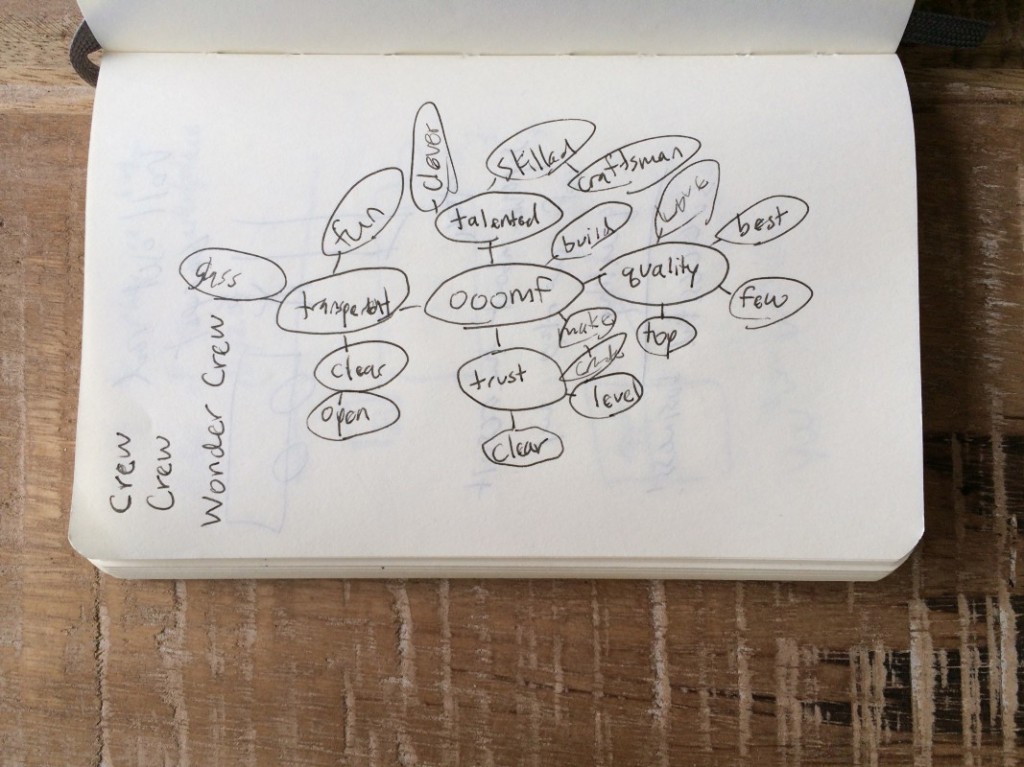 clever
skilled
craftsman
fun
talented
build
love
best
glass
transparent
ooomf
quality
few
make
top
clear
trust
level
open
clear
Crew
Crew
Wonder Crew